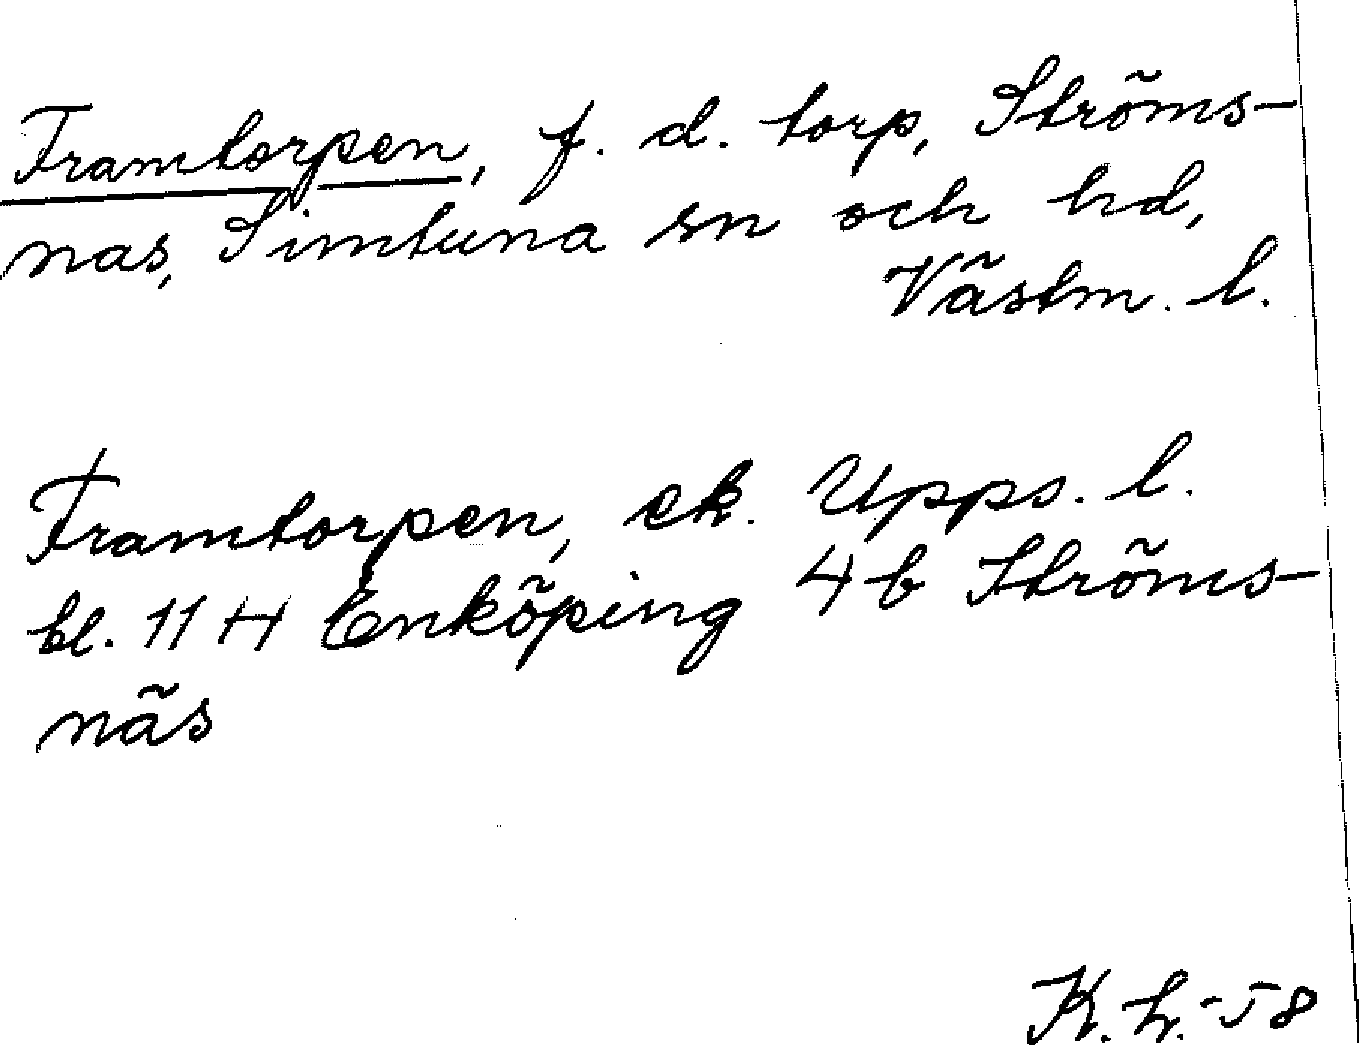 Framtorpen, f. d. torp, Ströms-
nas, Simtuna sn och hd,
Västm. l.
Framtorpen, ek. Upps. l.
bl. 11 H Enköping 4 b Ströms-
näs
K. L. -58